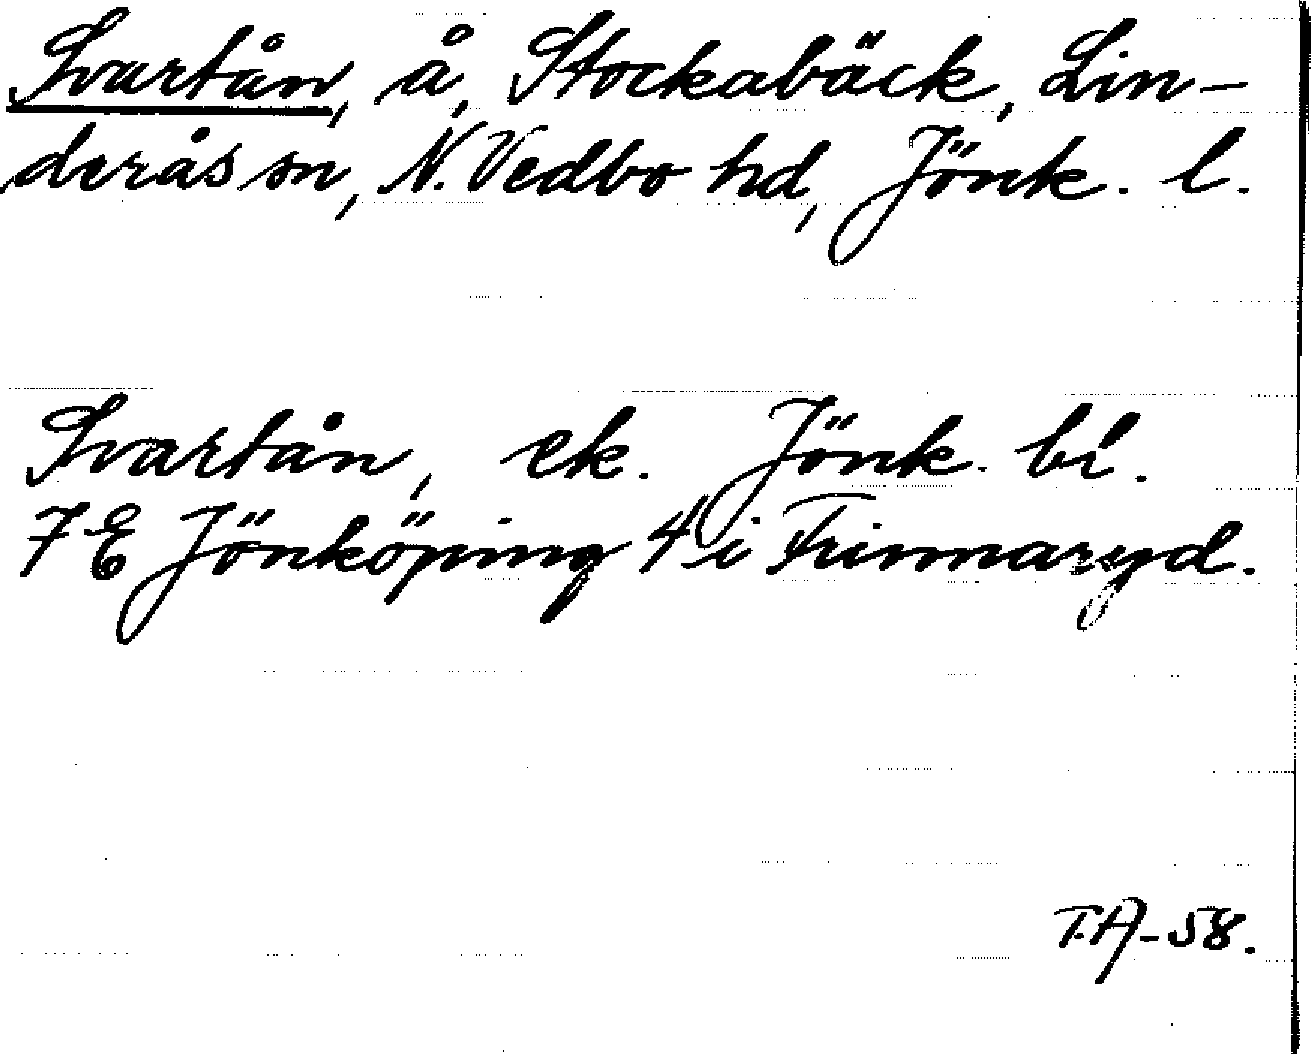 Svartån, å, Stockabäck, Lin-
derås sn, N. Vedbo hd, Jönk. l.
Svartån, ek. Jönk. bl.
7 E Jönköping 4 i Frinnaryd.
T.A-58.